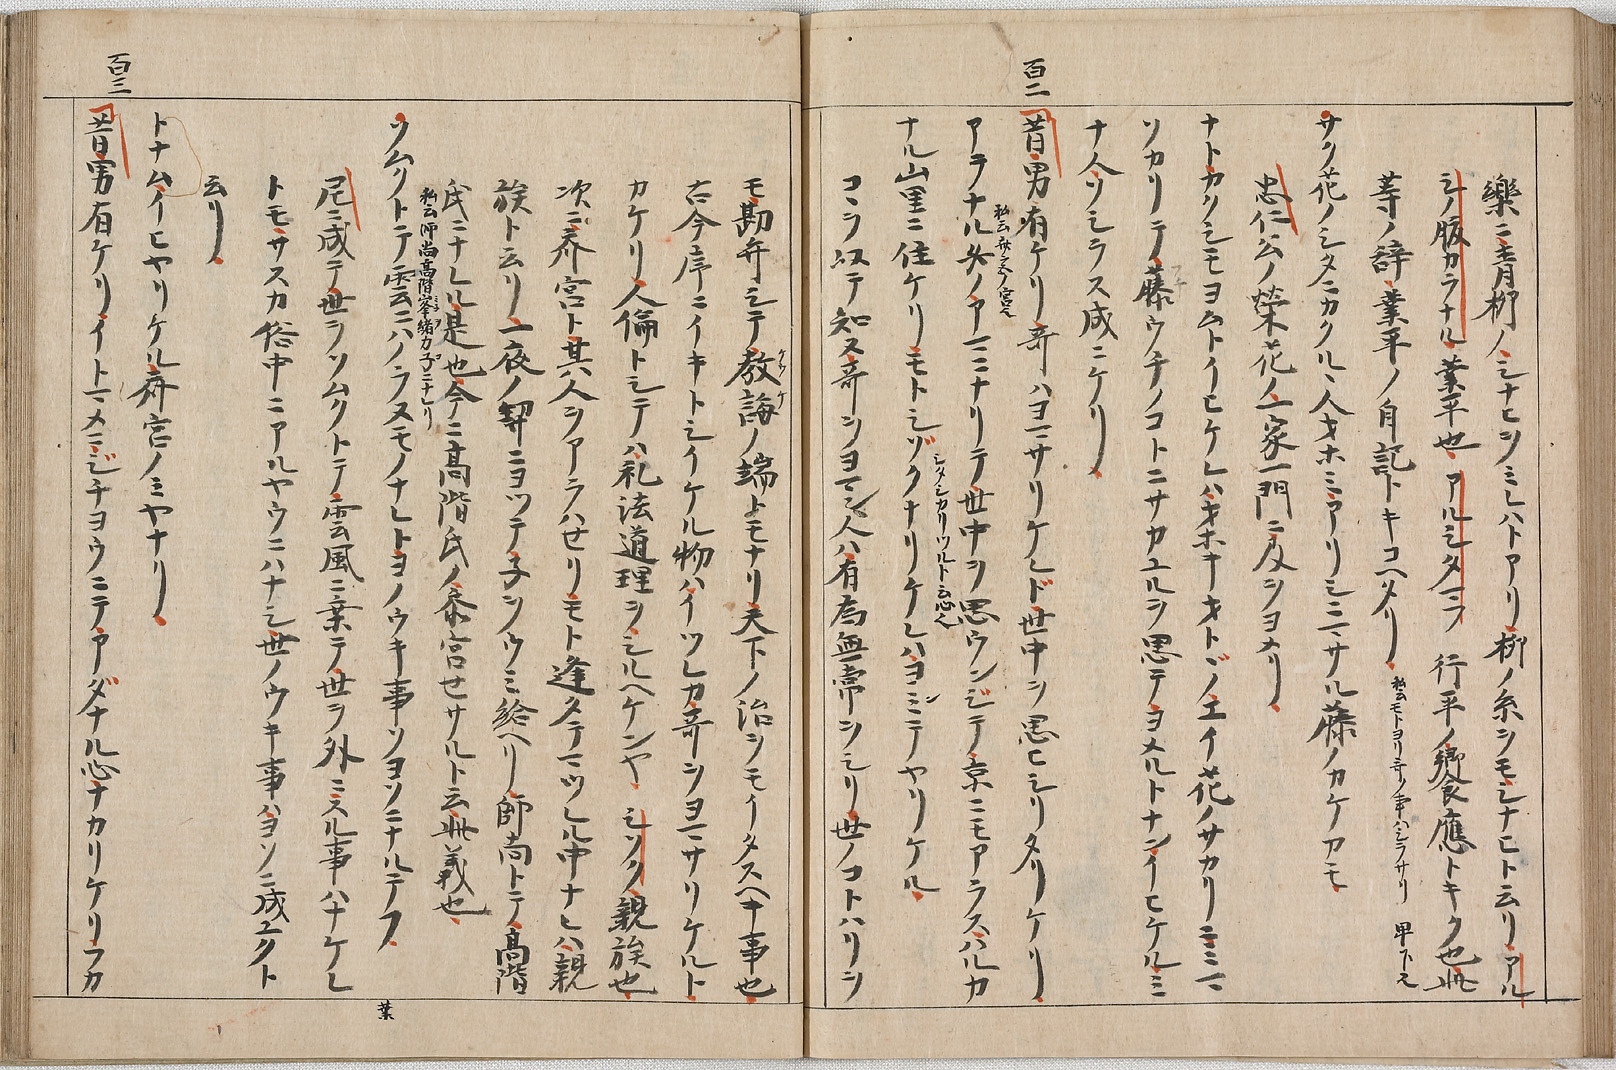 樂ニ青柳ノシナヒヲミレハトアリ柳ノ糸ヲモシナヒト云リアル
シノ腹カラナル業平也アルシタラ行平ノ饗應トキク也此
等ノ辞業平ノ自記トキコヘタリ
私云モトヨリ哥ノ事ハシラサリ
サク花ノシタニカクルヽ人オホミアリシニマサル藤ノカケカモ
忠仁公ノ榮花ノ一家一門ニ及ヲヨメリ
ナトカクシモヨムトイヒケレハオホキオトヾノエイ花ノサカリニミマ
ソカリテ藤ウチノコトニサカユルヲ思テヨメルトナンイヒケルミ
ナ人ソシラス成ニケリ
百二
昔男有ケリ哥ハヨマサリケレド世中ヲ思ヒシリタリケリ
私云斎宮ノ宮也
アテナル女ノアマニナリテ世中ヲ思ウンジテ京ニモアラスハルカ
ナル山里ニ住ケリモトシゾクナリケレハヨミテヤリケル
シタシカリツルト云心也
コヽヲ以テ知ヌ哥ヲヨマヌ人ハ有為無常ヲシリ世ノコトハリヲ
モ勘弁シテ教誨ノ端トモナリ天下ノ治ヲモイタスヘキ事也
古今序ニイキトシイケル物ハイツレカ哥ヲヨマサリケルト
カケリ人倫トシテハ礼法道理ヲシルヘケンヤシソク親族也
次ニ斎宮ト其人ヲアラハせリモト逢タテマツレル中ナレハ親
族ト云リ一夜ノ契ニヨツテ子ヲウミ給ヘリ師尚トテ高階
氏ニナレル是也今ニ高階氏ノ参宮せサルト云此義也
私云師尚高階峯緒カ子ニナレリ
ソムクトテ雲ニハノラヌモノナレトヨノウキ事ソヨソニナルテフ
尼ニ成テ世ヲソムクトテ雲風ニ乗テ世ヲ外ニスル事ハナケレ
トモサスカ俗中ニアルヤウニハナシ世ノウキ事ハヨソニ成ユクト
云リ
トナムイヒヤリケル斎宮ノミヤナリ
百三
昔男有ケリイトマメニジチヨウニテアダナル心ナカリケリフカ
葉